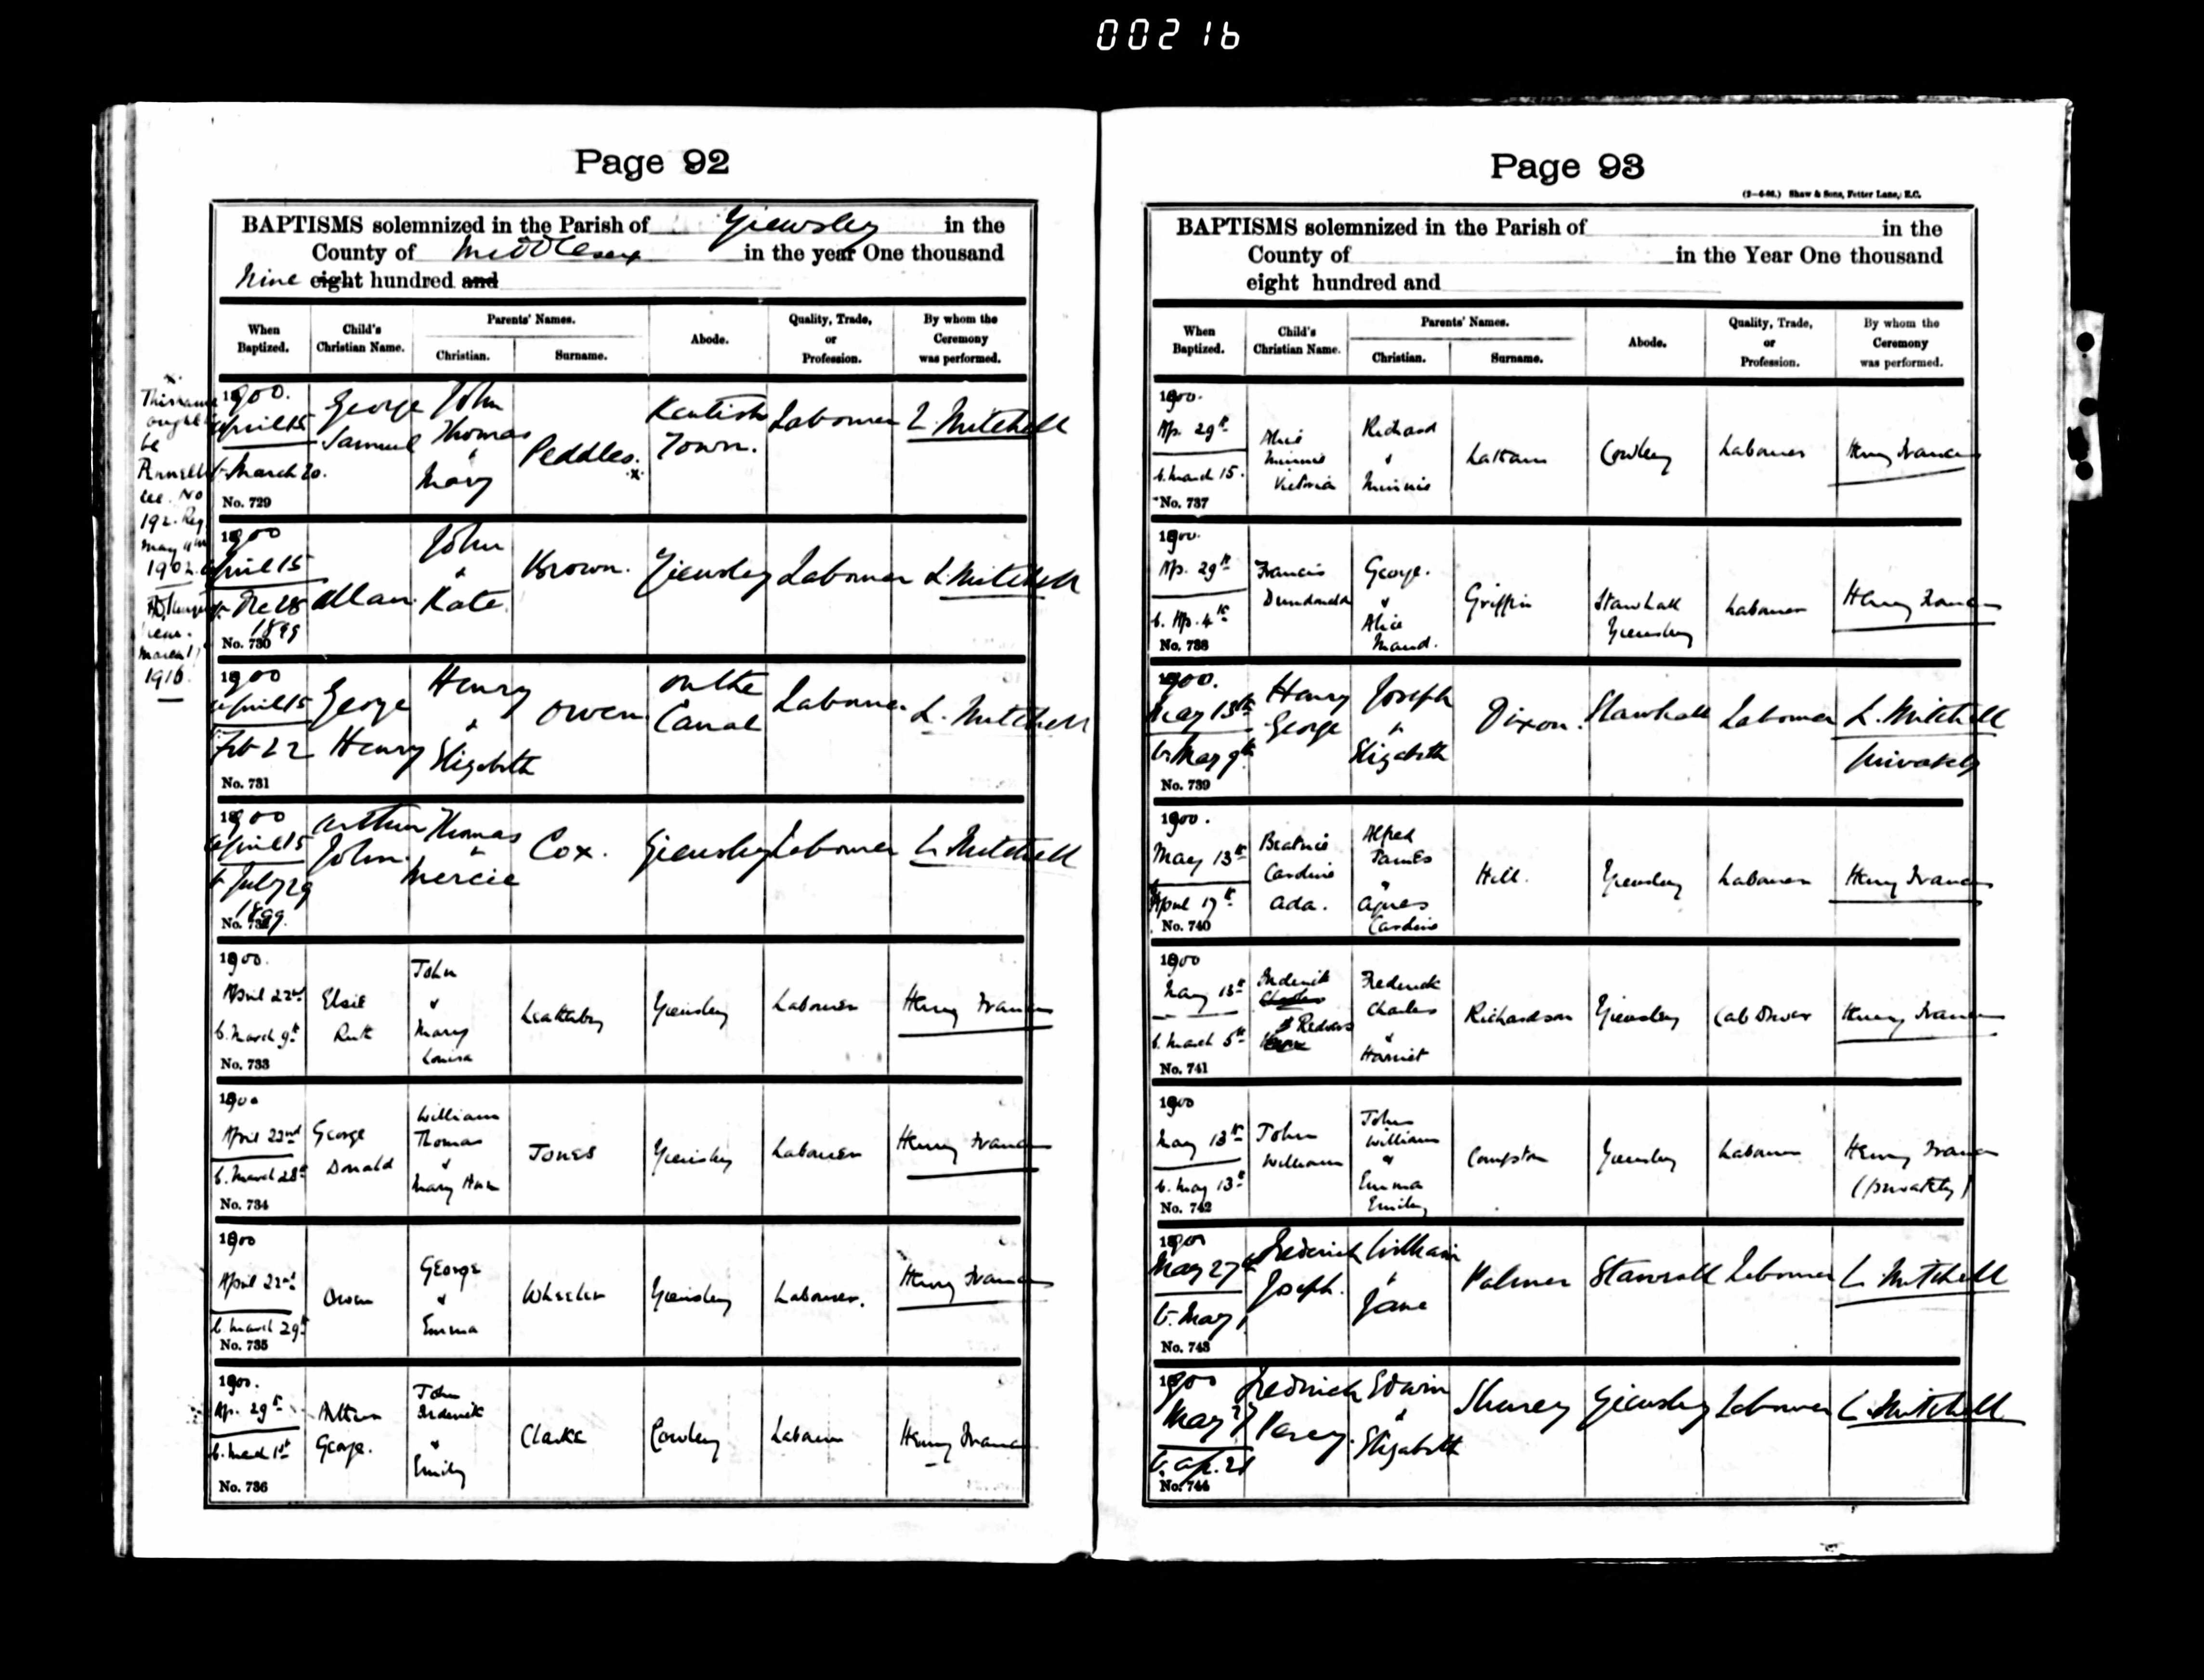 00216
Page 92
BAPTISMS solemnized in the Parish of Yiewsley in the
County of Middlesex in the year One thousand
Nine eight hundred and
When Baptized.
Child's Christian Name.
Parents' Names.
Christian.
Surname.
Abode.
Quality, Trade, or Profession.
By whom the Ceremony was performed.
x
This name
ought
be
see. No
192. Reg.
May
1902.
March 17
1916.
1900. April 15 b. March 20. No. 729
George Samuel
John Thomas & Mary
Peddles. x
Kentish Town.
Labourer
L. Mitchell
1900 April 15 b. Dec 28 1899 No. 730
Allan
John & Kate
Brown.
Yiewsley
Labourer
L. Mitchell
1900 April 15 Feb 22 No. 731
George Henry
Henry & Elizabeth
Owen
on the Canal
Labourer
L. Mitchell
1900 April 15 b July 29 1899. No. 732
Arthur John.
Thomas & Mercie
Cox.
Yiewsley
Labourer
L. Mitchell
1900. April 22nd b. March 9th No. 733
Elsie Ruth
John & Mary Louisa
Yiewsley
Labourer
Henry Frances
1900 April 22nd b. March 28th No. 734
George Donald
William Thomas & Mary Ann
Jones
Yiewsley
Labourer
Henry Frances
1900 April 22nd b March 29th No. 735
Owen
George & Emma
Wheeler
Yiewsley
Labourer.
Henry Frances
1900. Ap. 29th b. March 1st No. 736
Arthur George.
John Frederick & Emily
Clarke
Cowley
Labourer
Henry Frances
Page 93
(2—6-98.) Shaw & Sons, Fetter Lane, E.C.
BAPTISMS solemnized in the Parish of in the
County of in the Year One thousand
eight hundred and
When Baptized.
Child's Christian Name.
Parents' Names.
Christian.
Surname.
Abode.
Quality, Trade, or Profession.
By whom the Ceremony was performed.
1900. Ap. 29th b. March 15. No. 737
Alice Minnie Victoria
Richard & Minnie
Latham
Cowley
Labourer
Henry Frances
1900. Ap. 29th b. Ap. 4th No. 738
Francis Dundonald
George. & Alice Maud.
Griffin
Starehall Yiewsley
Labourer
Henry Frances
1900. May 13th b. May 9th. No. 739
Henry George
Joseph & Elizabeth
Dixon.
Labourer
L. Mitchell privately
1900. May 13th April 17th No. 740
Beatrice Caroline Ada.
Alfred James & Agnes Caroline
Hill.
Yiewsley
Labourer
Henry Frances
1900 May 13th b. March 5th No. 741
Frederick Charles Redvers
Frederick Charles & Harriet
Richardson
Yiewsley
Cab Driver
Henry Frances
1900 May 13th b. May 13th No. 742
John William
John William & Emma Emily
Compton
Yiewsley
Labourer
Henry Frances (privately)
1900 May 27th b. May 1. No. 743
Frederick Joseph.
William & Jane
Palmer
Labourer
L. Mitchell
1900 May 27 b. Ap. 21 No. 744
Fredrick Percy.
Edwin & Elizabeth
Shurey
Yiewsley
Labourer
L. Mitchell